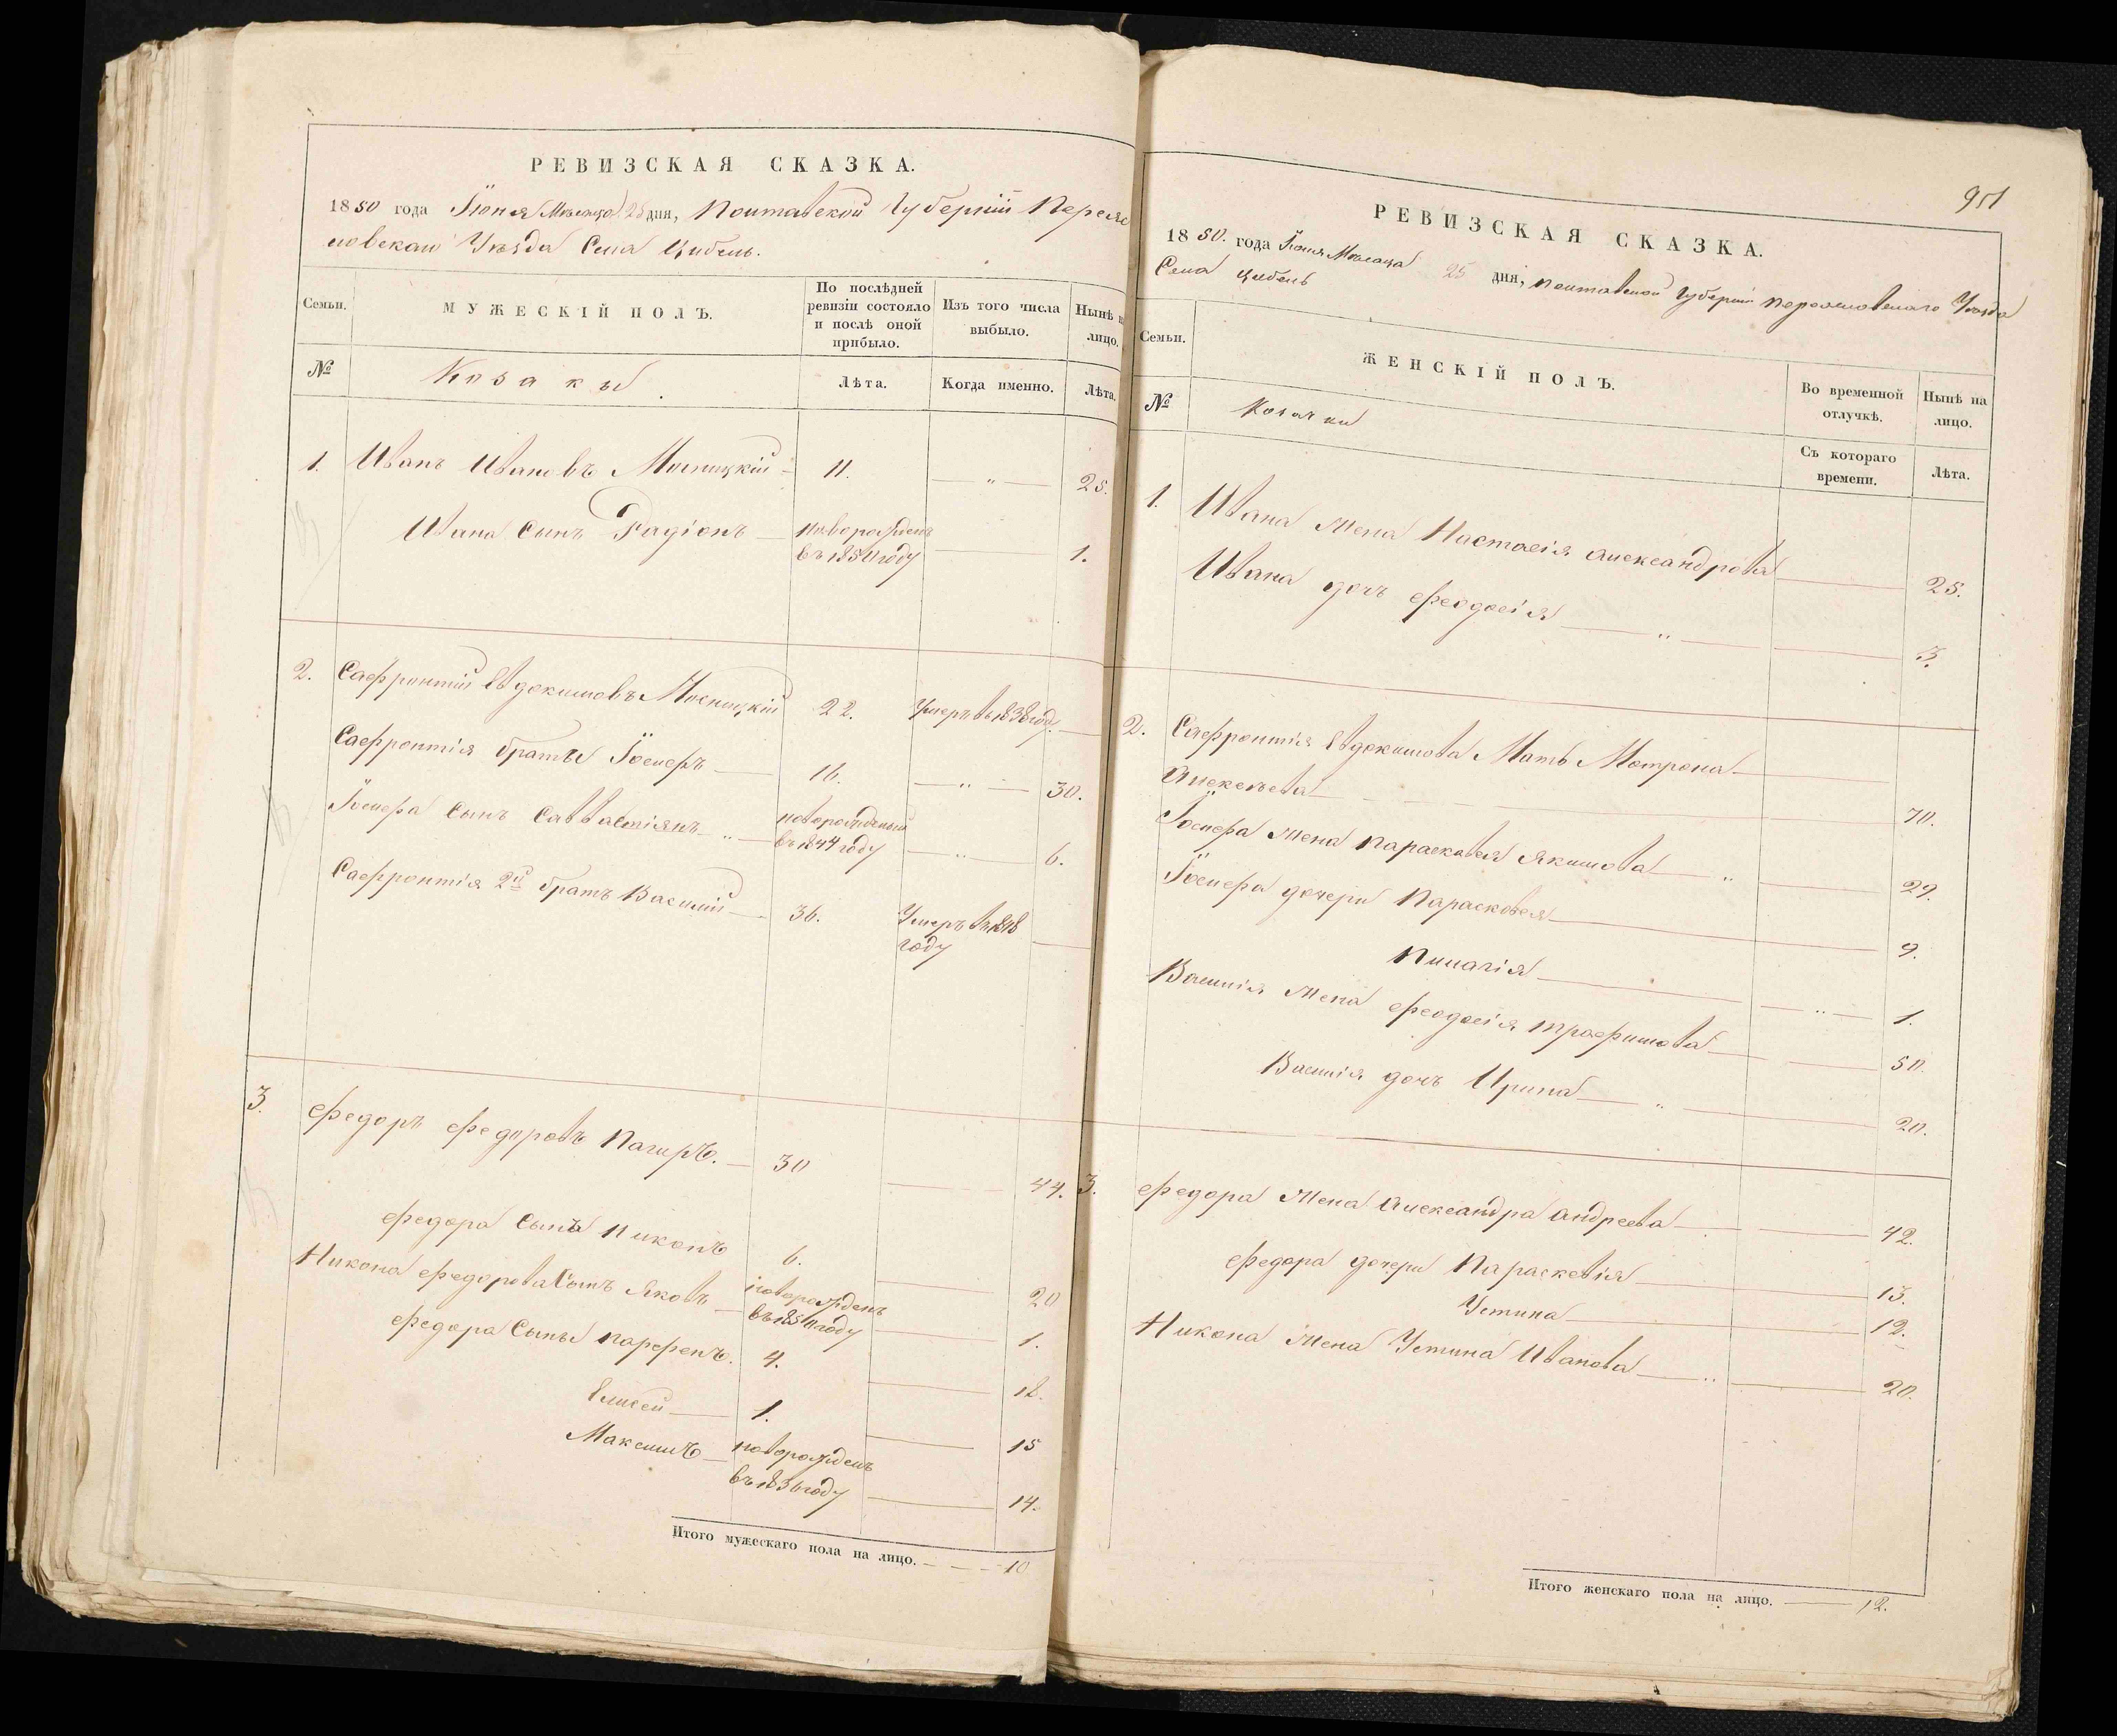 РЕВИЗСКАЯ СКАЗКА.
1850 года Іюня Мѣсяца 25 дня, Полтавской Губерніи Переяс
ловскаго Уѣзда Села Цибель.
Семьи. МУЖЕСКІЙ ПОЛЪ. По послѣдней ревизіи состояло и послѣ оной прибыло. Изъ того числа выбыло. Нынѣ на лицо.
№ Козаки. Лѣта. Когда именно. Лѣта.
1. Иванъ Ивановъ 11. — " — 25.
Ивана Сынъ Радіонъ — новорожденъ
въ 1850 году — 1.
2. Сафронтій Евдокимовъ 22. Умеръ въ 1838 год. —
Сафронтія братъ Іосифъ — 16. — " — 30.
Іосифа Сынъ Савастіянъ — " — новорожденный
въ 1844 году — " — 6.
Сафронтія 2й братъ Василій — 36. Умеръ въ 1848
году —
3. Федоръ Федоровъ — 30 — 44.
Федора Сынъ Никонъ 6. — 20
Никона Федорова Сынъ Яковъ — новорожденъ
въ 1850 году — 1.
Федора Сыны Парфенъ. 4. — 18.
Елисей — 1. — 15
Максимъ — новорожденъ
въ 1836 году — 14.
Итого мужескаго пола на лицо. — — — 10
951
РЕВИЗСКАЯ СКАЗКА.
1850. года Іюня Мѣсяца 25 дня, Полтавской Губерніи Переясловскаго Уѣзда
Села Цибель
Семьи. ЖЕНСКІЙ ПОЛЪ. Во временной отлучкѣ. Нынѣ на лицо.
№ Козачки Съ котораго времени. Лѣта.
1. Ивана Жена Настасія Александрова — 25.
Ивана дочь Феодосія — " — 3.
2. Сафронтія Евдокимова Мать Мотрона —
Алексѣева — 70.
Іосифа Жена Парасковея Якимова — " — 29.
Іосифа дочери Парасковея — 9.
Пилагія — " — 1.
Василія Жена Феодосія Трофимова — 50.
Василія дочь Ирина — " — 20.
3. Федора Жена Александра Андреева — 42.
Федора дочери Параскевія — 13.
Устина — 12.
Никона Жена Устина Иванова — " — 20.
Итого женскаго пола на лицо. — 12.